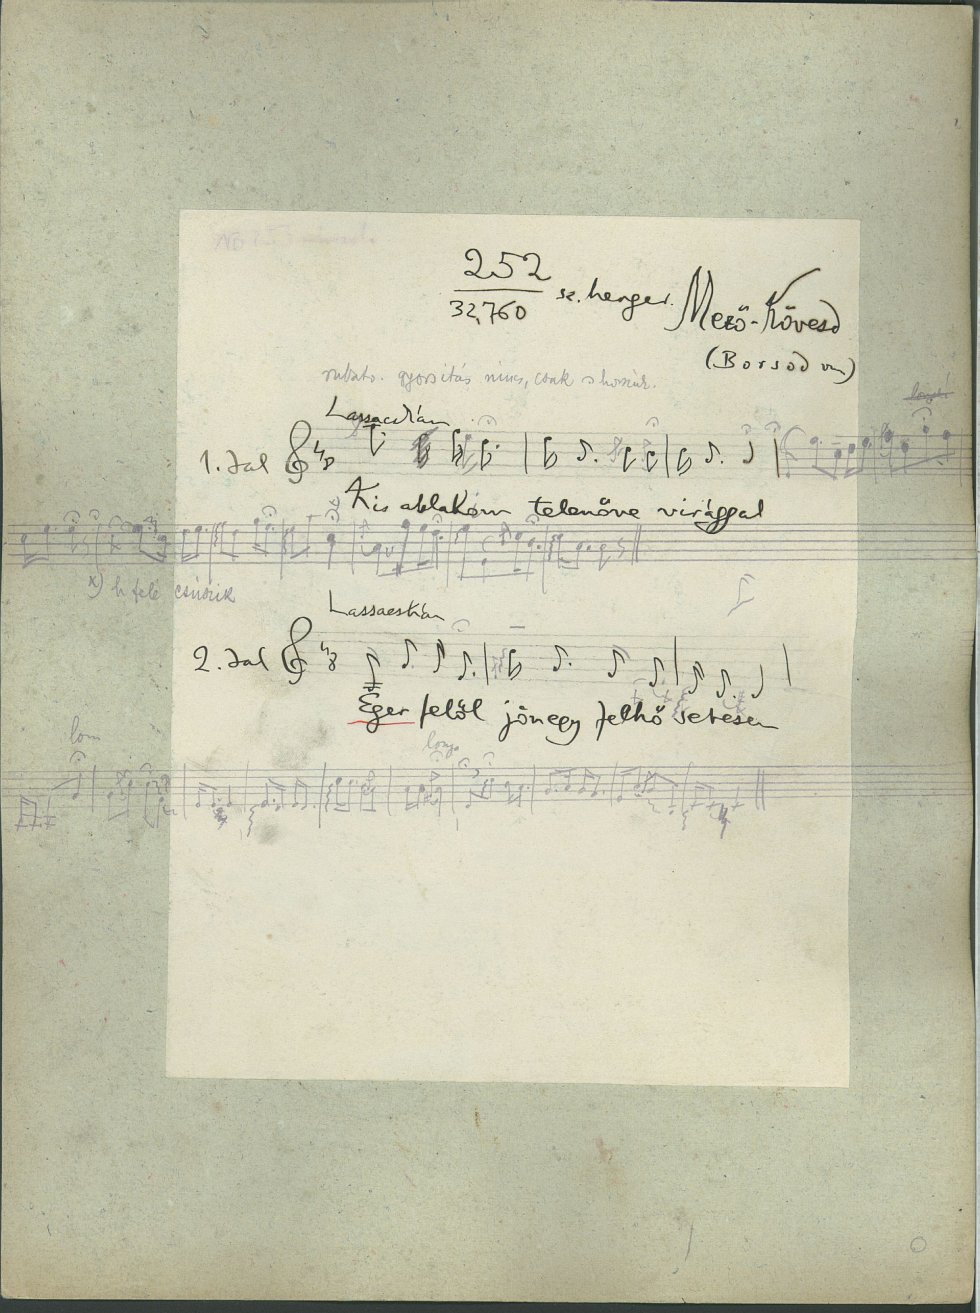 252
32,760 sz. henger. Mező-Kövesd
(Borsod vm)
rubato. gyorsítás nincs, csak
Lassacskán
1. Dal
Kis ablakom telenőve virággal
x) h felé csúszik
Lassacskán
2. Dal
Éger felől jönegy felhő setesen